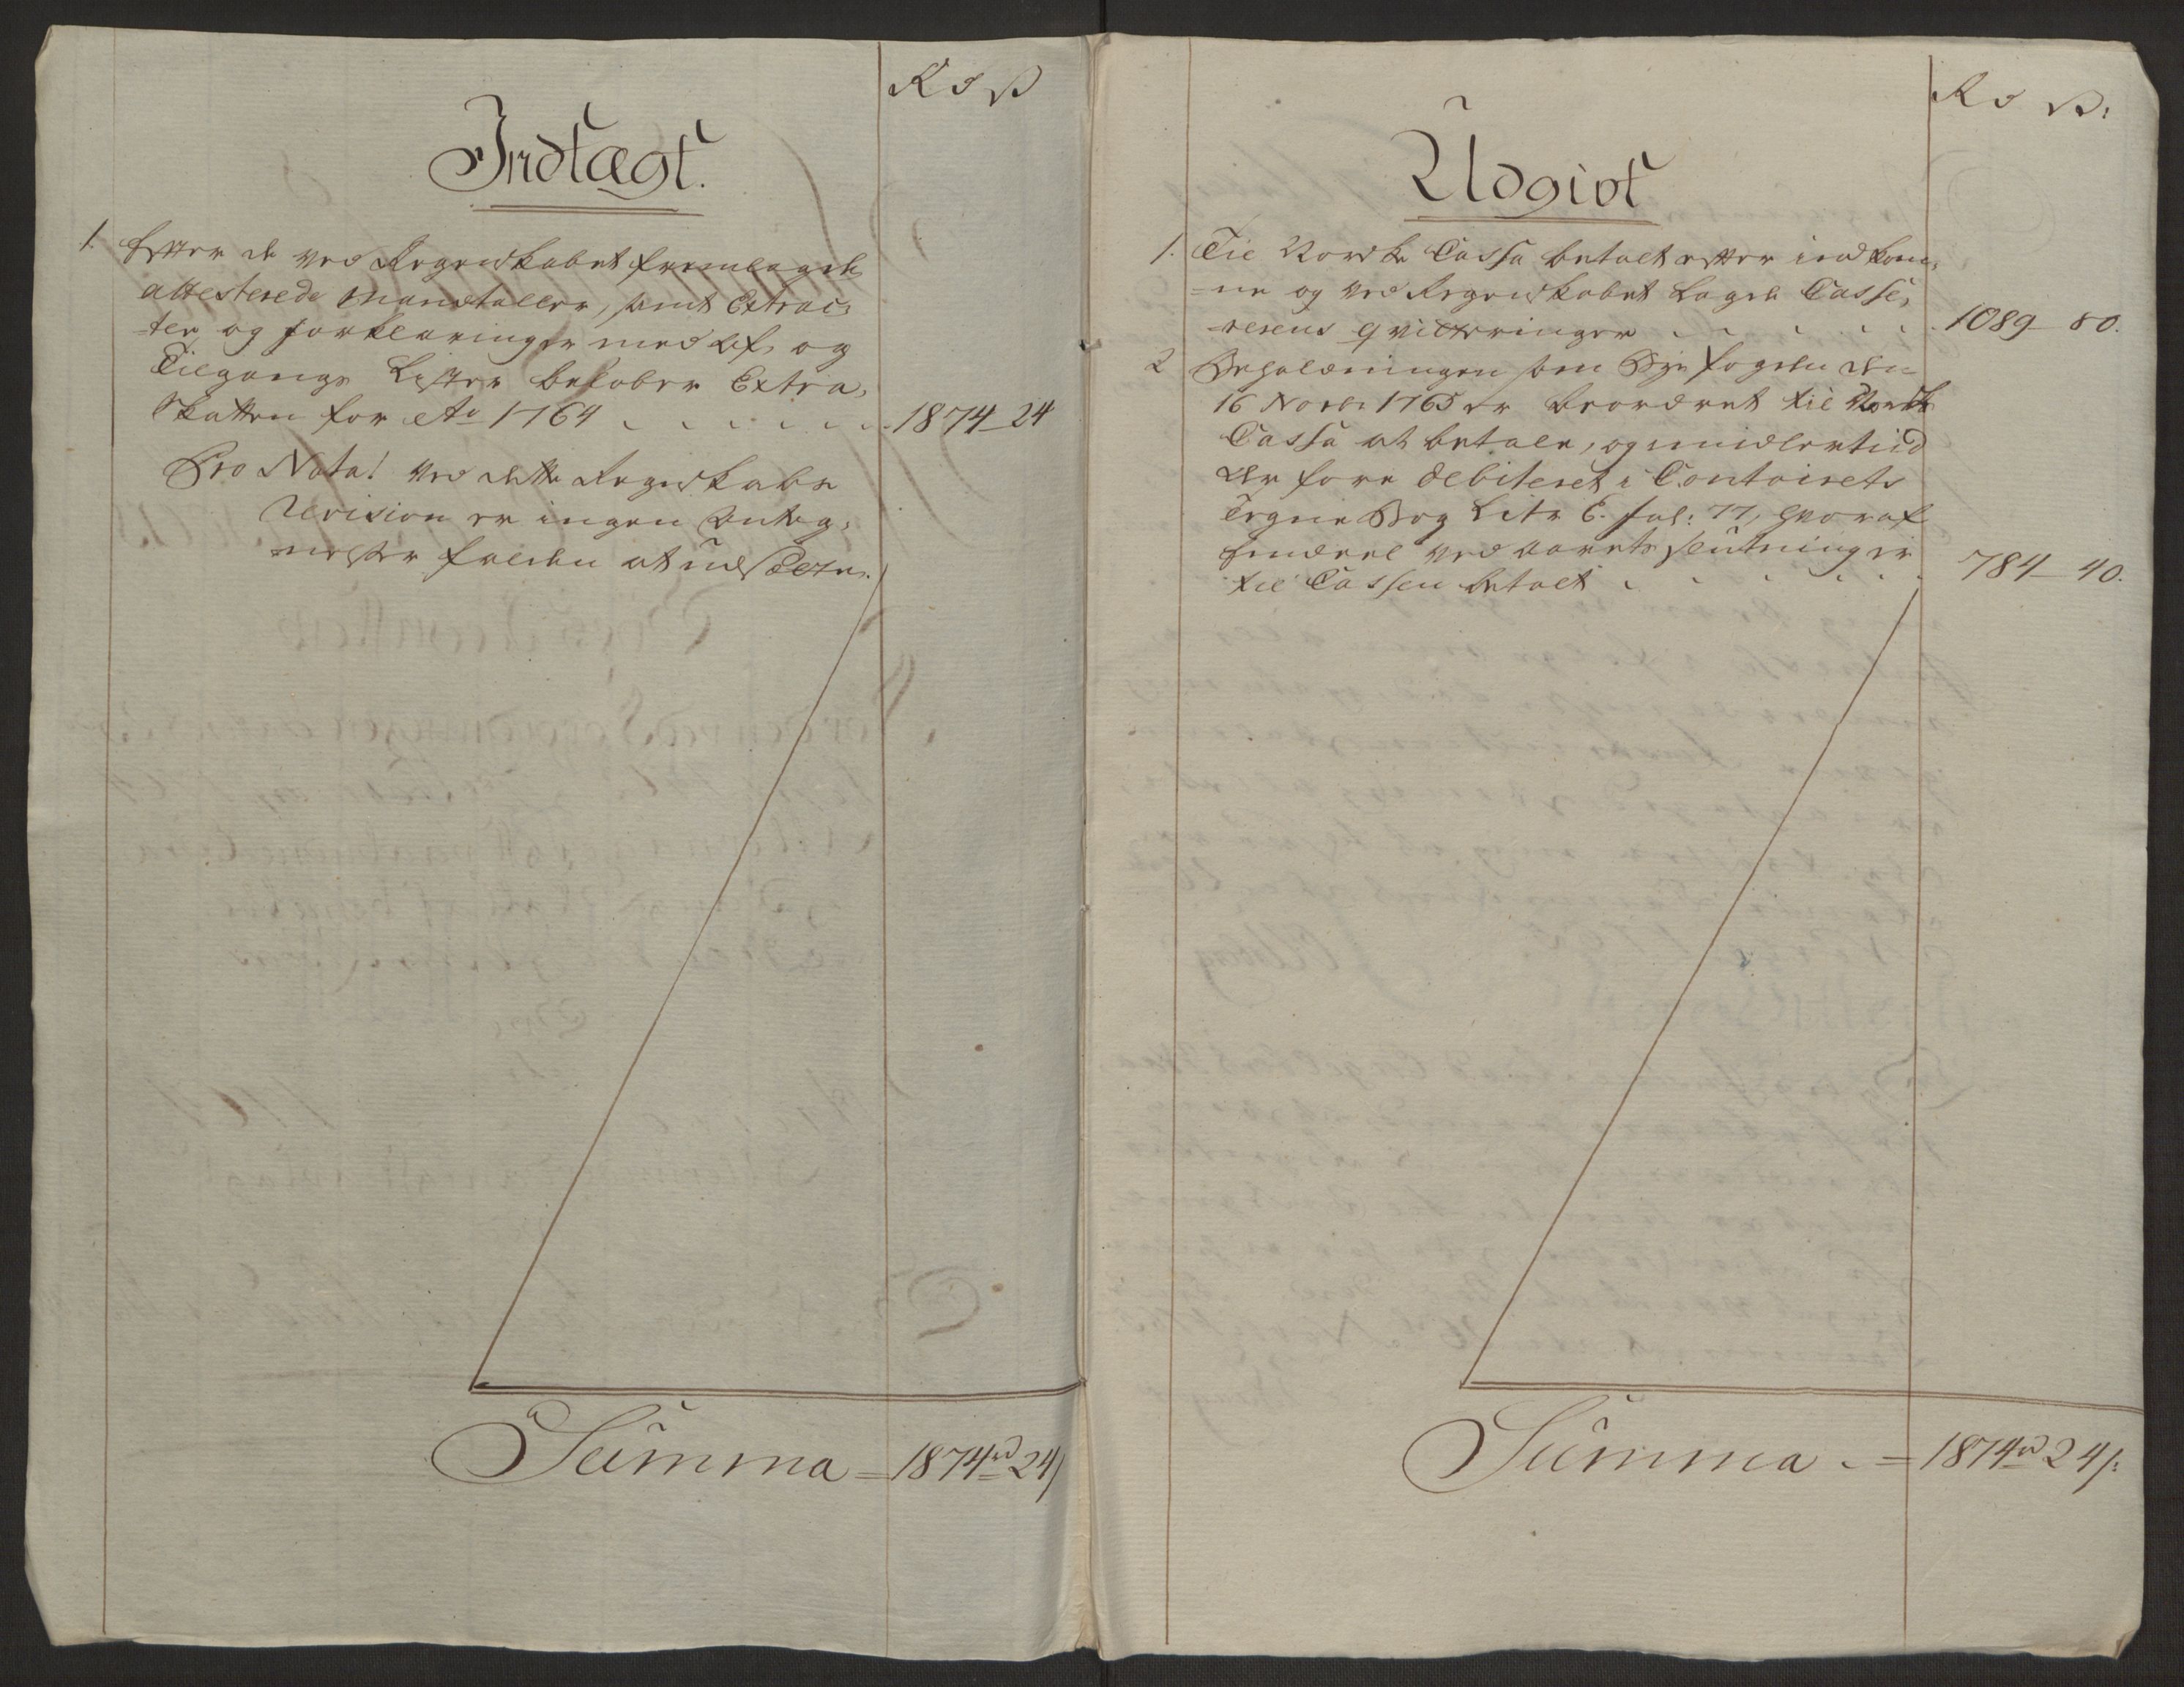 Rd ß
Indtægt.
1. Efter de ved Regnskabet fremlagde
attesterede Mandtaller, samt Extrac-
-ter og forklaringer med Af- og
Tilgangs Lister beløber Extra-
Skatten for Ao 1764 - - - - - - 1874 - 24
Pro Nota! Ved dette Regnskabs
Revision er ingen Anteg-
nelser falden at udsætte.
Summa = 1874 rd 24 ß
Rd ß:
Udgivt
1. Til Norske Cassa betalt efter indkom-
-ne og ved Regnskabet lagde Casse-
-rerens qvitteringer - - - - - 1089 - 80.
2 Beholdningen som Byefogden den
16 Novbr 1765 er beordret til Norske
Cassa at betale, og imidlertiid
der fore debiteret i Contoirets
Tegne Bog Litr E. fol: 77, hvoraf
endeel ved aarets slutning er
til Cassen betalt - - - - - 784 - 40.
Summa - = 1874 rd 24 ß: